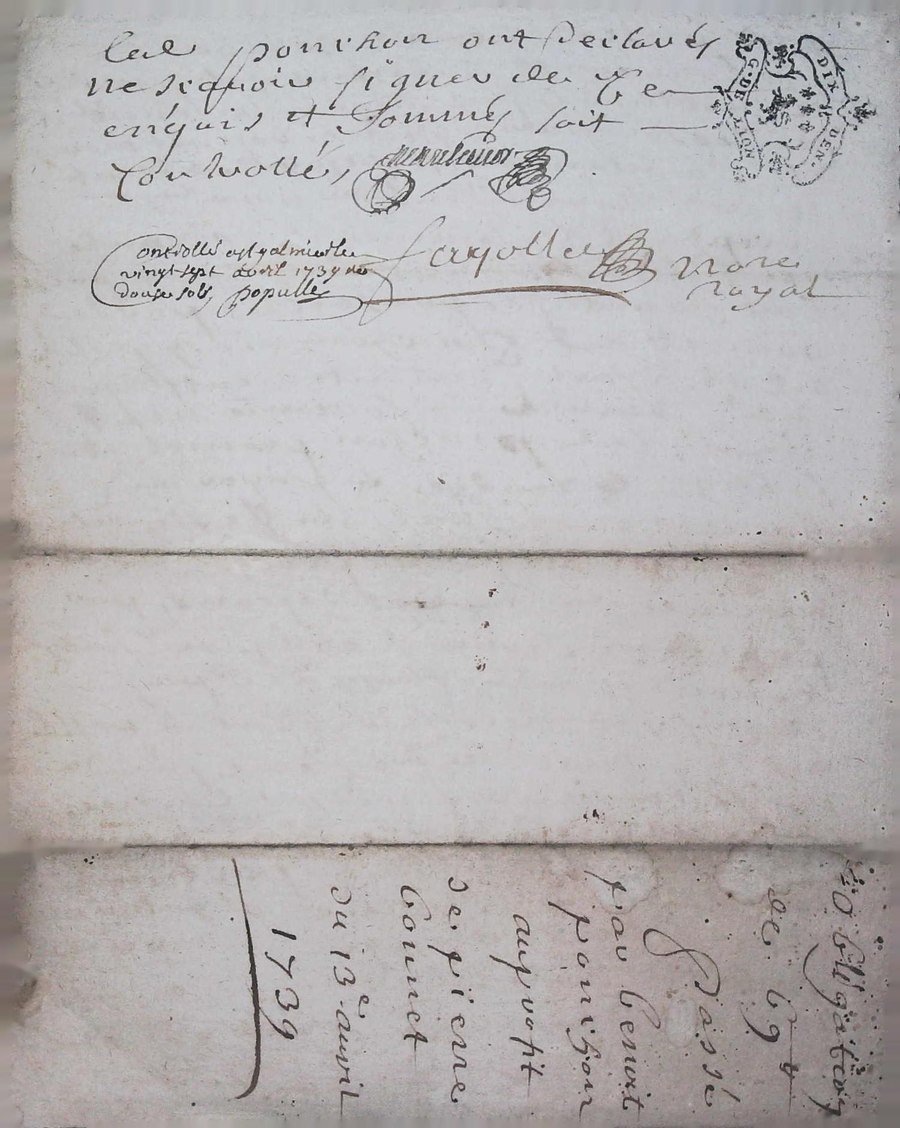 led ponchon ont declarés
ne scavoir signer de ce
enquis et sommés soit
Controllé,
Controllé a st galmier le
vingt sept avril 1739 re
douze sols, populle
fayolle
nore
royal
G. DE
DIX DEN.
obligation
de 69
passé
par benoit
ponchon
au profit
de pierre
du 13e avril
1739